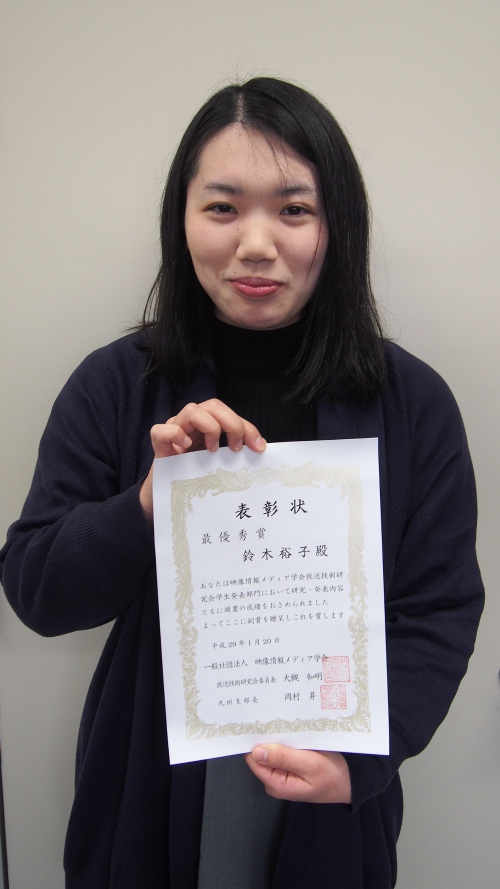 表彰状
最優秀賞
鈴木裕子殿
あなたは映像情報メディア学会放送技術研
究会学生発表部門において研究・発表内容
ともに頭書の成績をおさめられました
よってここに副賞を贈呈しこれを賞します
平成29年1月20日
一般社団法人 映像情報メディア学会
放送技術研究会委員長 大槻 知明
九州支部長 岡村 昇